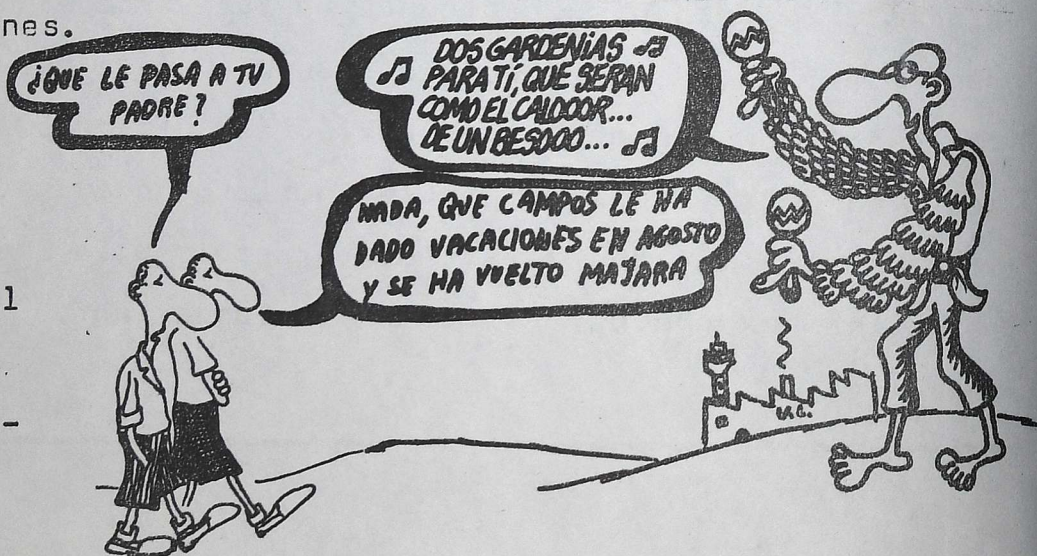 nes.
¿QUE LE PASA A TU
PADRE?
DOS GARDENIAS
PARA TÍ, QUE SERAN
COMO EL CALOOOR...
DE UN BESOOO...
NADA, QUE CAMPOS LE HA
DADO VACACIONES EN AGOSTO
Y SE HA VUELTO MAJARA
l
-